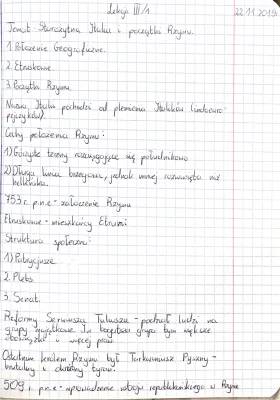 Lekcja III/1
22.11.2019
Temat: Starożytna Italia i początki Rzymu.
1. Położenie Geograficzne.
2. Etruskowie.
3. Początki Rzymu.
Nazwa Italia pochodzi od plemienia Italików (indoeuro-
pejczyków).
Cechy położenia Rzymu:
1) Górzyste tereny rozciągające się południkowo
2) Długa linia brzegowa, jednak mniej rozwinięta niż
helleńska.
753 r. p.n.e - założenie Rzymu
Etruskowie - mieszkańcy Etrurii
Struktura społeczna:
1) Patrycjusze.
2. Plebs.
3. Senat.
Reformy Serwiusza Tuliusza - podział ludzi na
grupy majątkowe. Im bogatsza grupa tym większe
obowiązki i więcej praw.
Ostatnim królem Rzymu był Tarkwiniusz Pyszny -
brutalny i okrutny tyran.
509 r. p.n.e - wprowadzenie ustroju republikańskiego w Rzymie